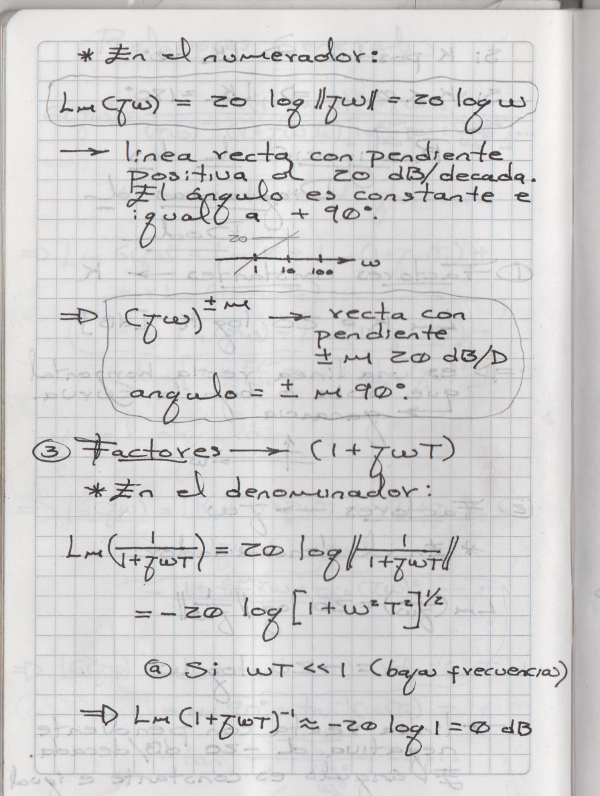 * En el numerador:
Lm(jω) = 20 log ||jω|| = 20 log ω
→ linea recta con pendiente
positiva d 20 dB/decada.
El ángulo es constante e
igual a + 90°.
20
1 10 100 ω
⇒ (jω)^±m → recta con
pendiente
± m 20 dB/D
angulo = ± m 90°.
③ Factores → (1 + jωT)
* En el denominador:
Lm(1/(1+jωT)) = 20 log ||1/(1+jωT)||
= -20 log [1 + ω²T²]^1/2
ⓐ Si ωT << 1 (baja frecuencia)
⇒ Lm(1+jωT)⁻¹ ≈ -20 log 1 = 0 dB